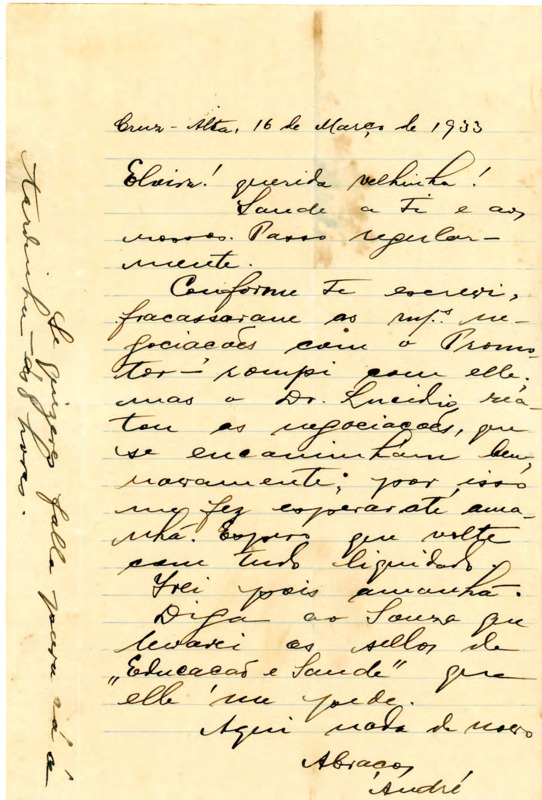 Cruz-Alta, 16 de Março de 1933
Elvira! querida velhinha!
Saude a Ti e aos
nossos. Passo regular-
mente.
Conforme Te escrevi,
fracassaram as mªs ne-
gociacões com o Promo-
tor – rompi com elle,
mas o Dr. Lucidio rea-
tou as negociacões, que
se encaminhãm bem,
novamente; por isso
me fez esperar até ama-
nhã. Espero que volte
com tudo liquidado.
Irei pois amanhã.
Diga ao Souza que
levarei os sellos de
„Educacão e Saude" que
elle me pede.
Aqui nada de novo
Abraços
André
Se quizeres falla para cá á
tardinha – ás horas.